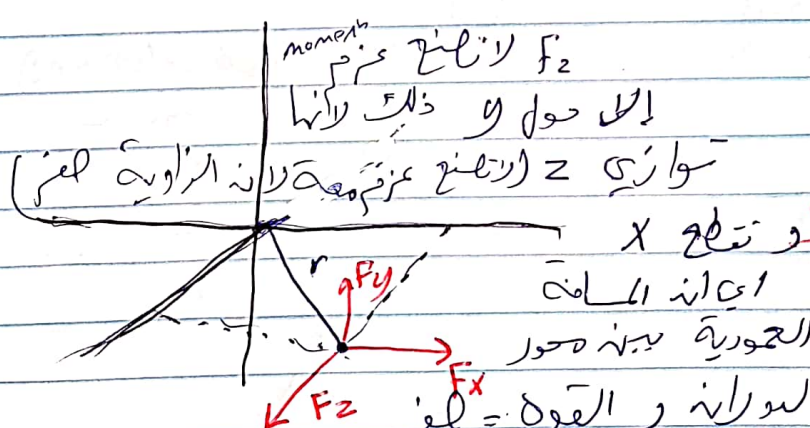 moment
F₂ لا تصنع عزم
إلا حول y ذلك لانها
توازي z (لا تصنع عزم معه لانه الزاوية صفر)
و تقطع X
اي انه المسافة
العمودية بين محور
الدورانه و القوه = صفر
r
Fy
Fx
Fz